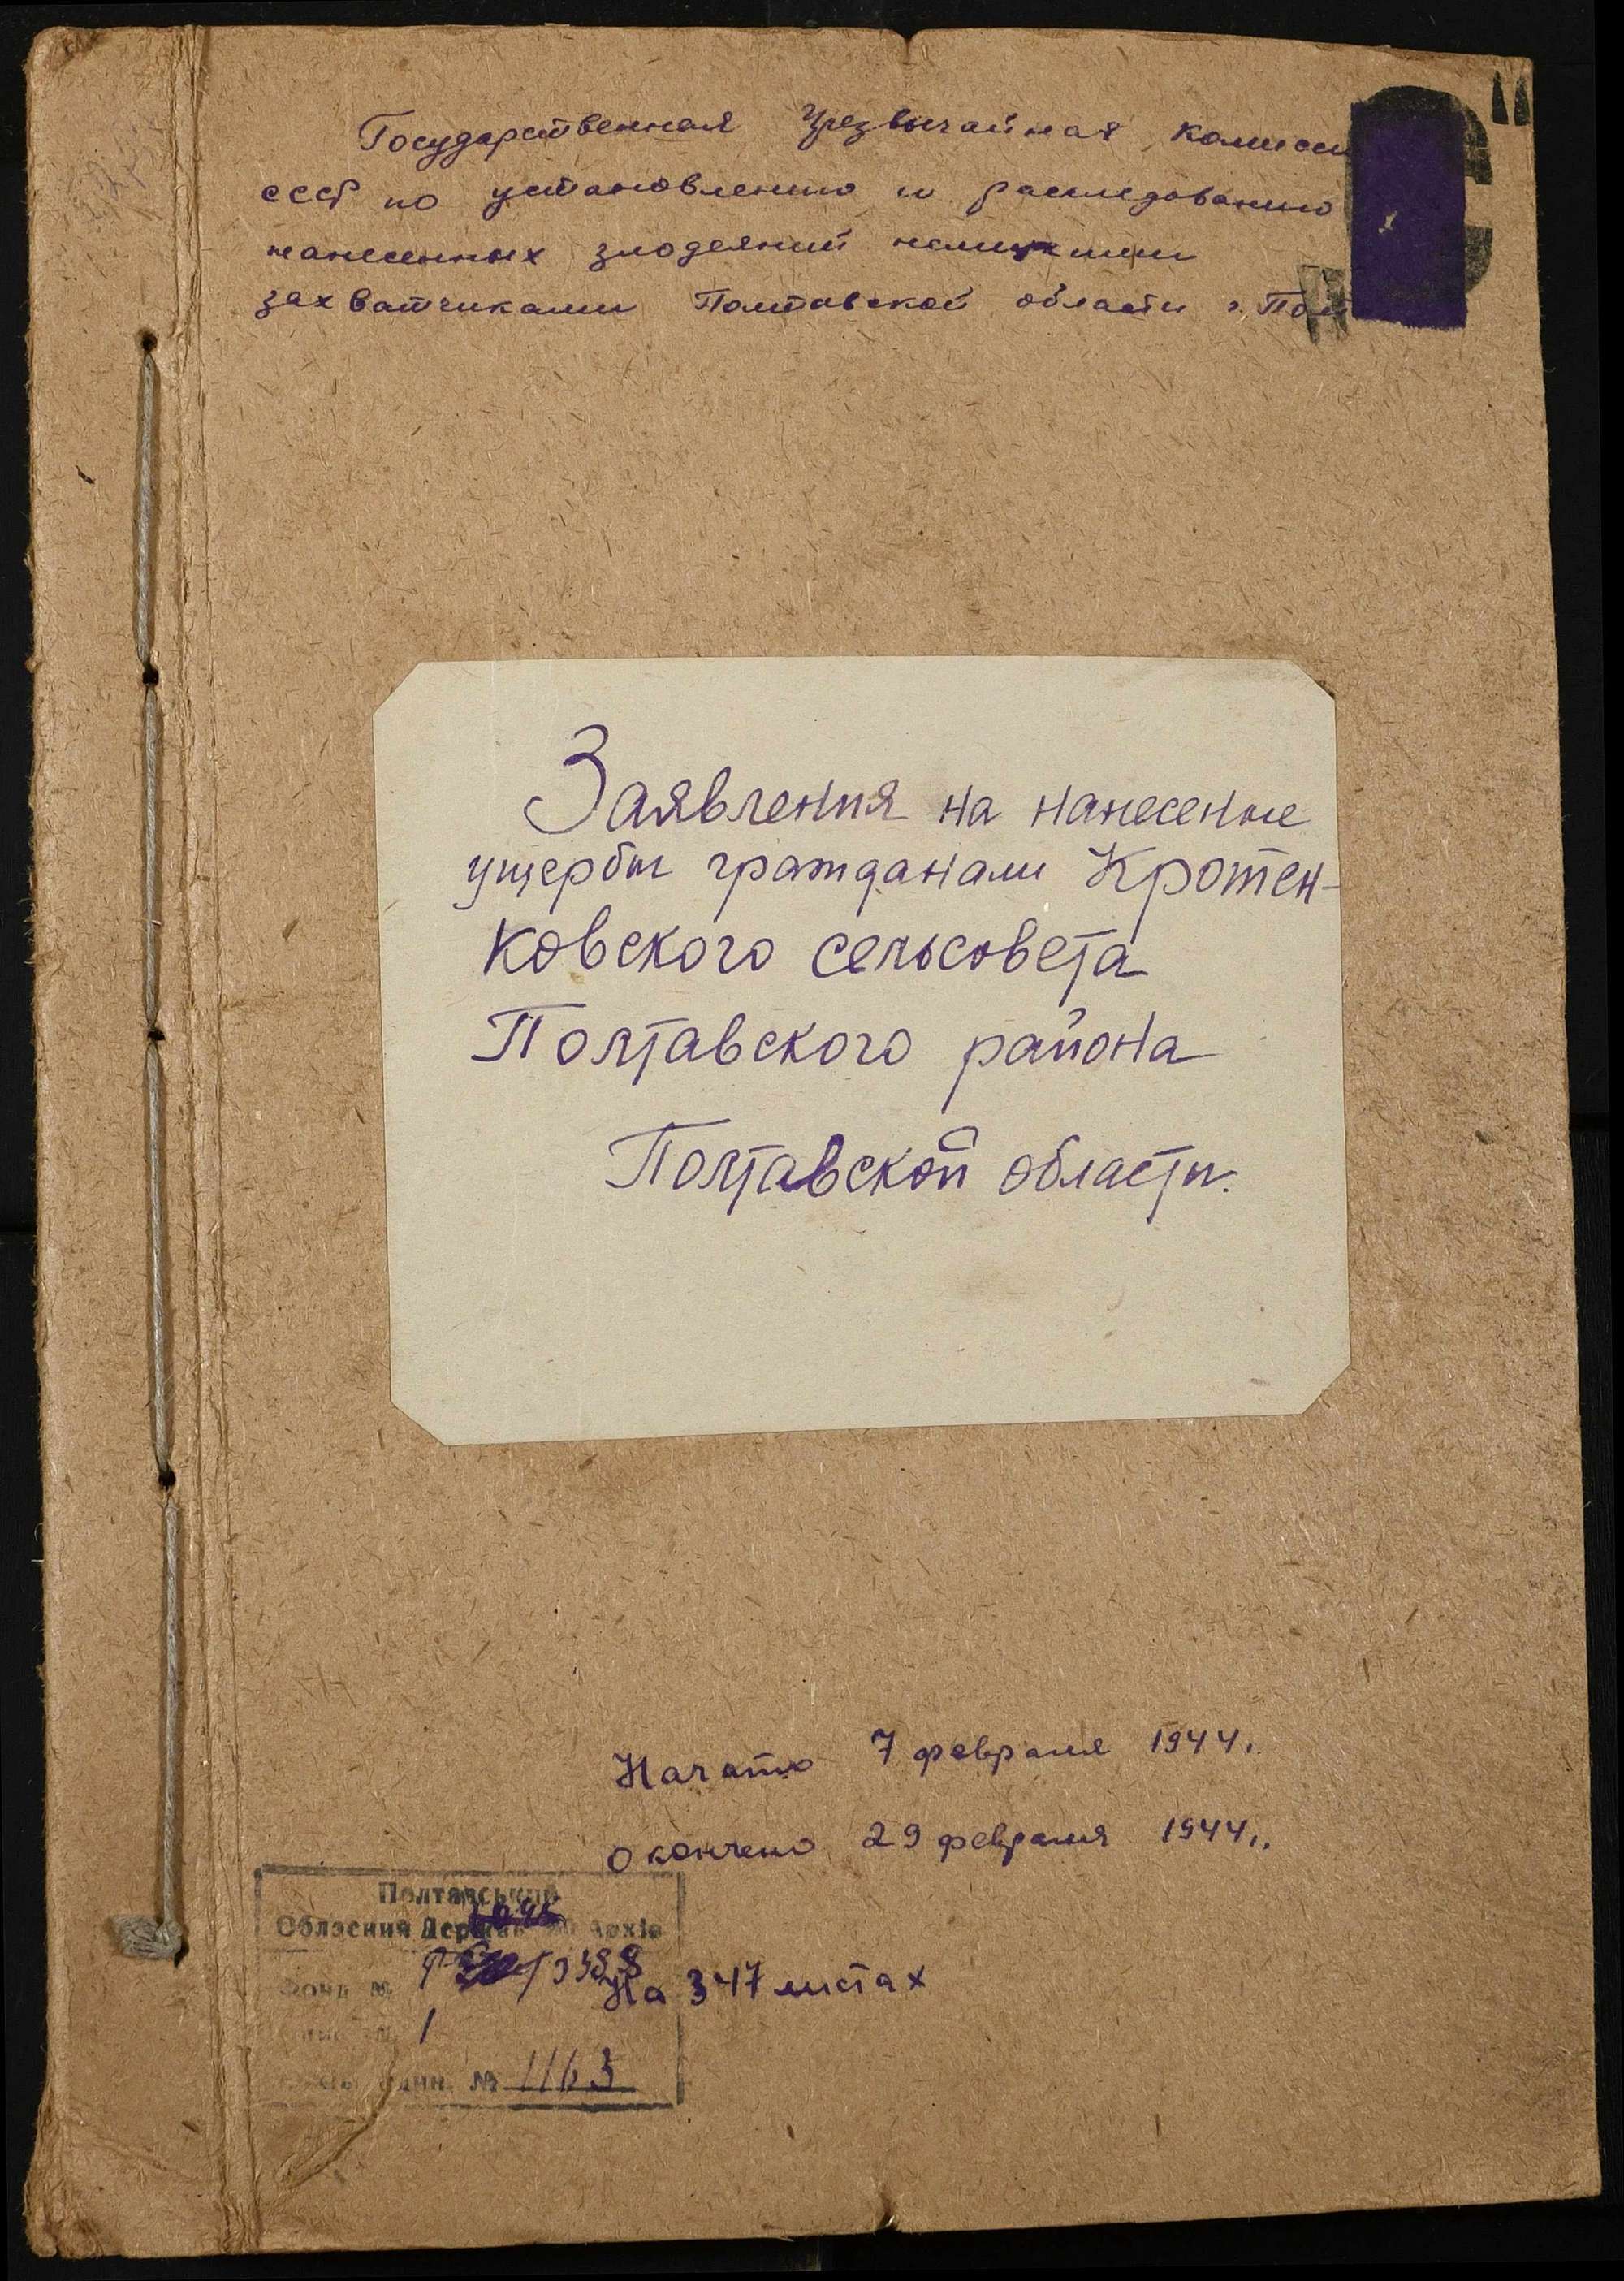 Государственная Чрезвычайная Комисси
СССР по установлению и расследованию
нанесенных злодеяний немецкими
захватчиками Полтавской области г. Пол
"С"
Заявления на нанесение
ущербы гражданами Кротен-
ковского сельсовета
Полтавского района
Полтавской области.
Начато 7 февраля 1944г.
окончено 29 февраля 1944г.
Полтавський
Обласний Держ архів
Фонд № Р 3388
На 347 листах
1
№ 1163